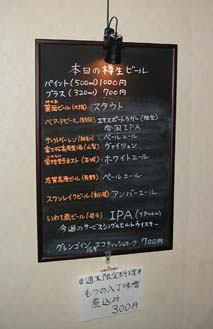 本日の樽生ビール
パイント(500ml)1000円
グラス(320ml)700円
箕面ビール(大阪) スタウト
ベアードビール(静岡) エキスポートラガー(限定)
帝国IPA
ペールエール
富士桜高原麦酒(山梨) ヴァイツェン
常陸野ネスト(茨城) ホワイトエール
志賀高原ビール(長野) ペールエール
スワンレイクビール(新潟) アンバーエール
いわて蔵ビール(岩手) IPA
今週のサービスシングルモルトウイスキー
グレンゴイン 700円
もつの八丁味噌
煮込み
300円